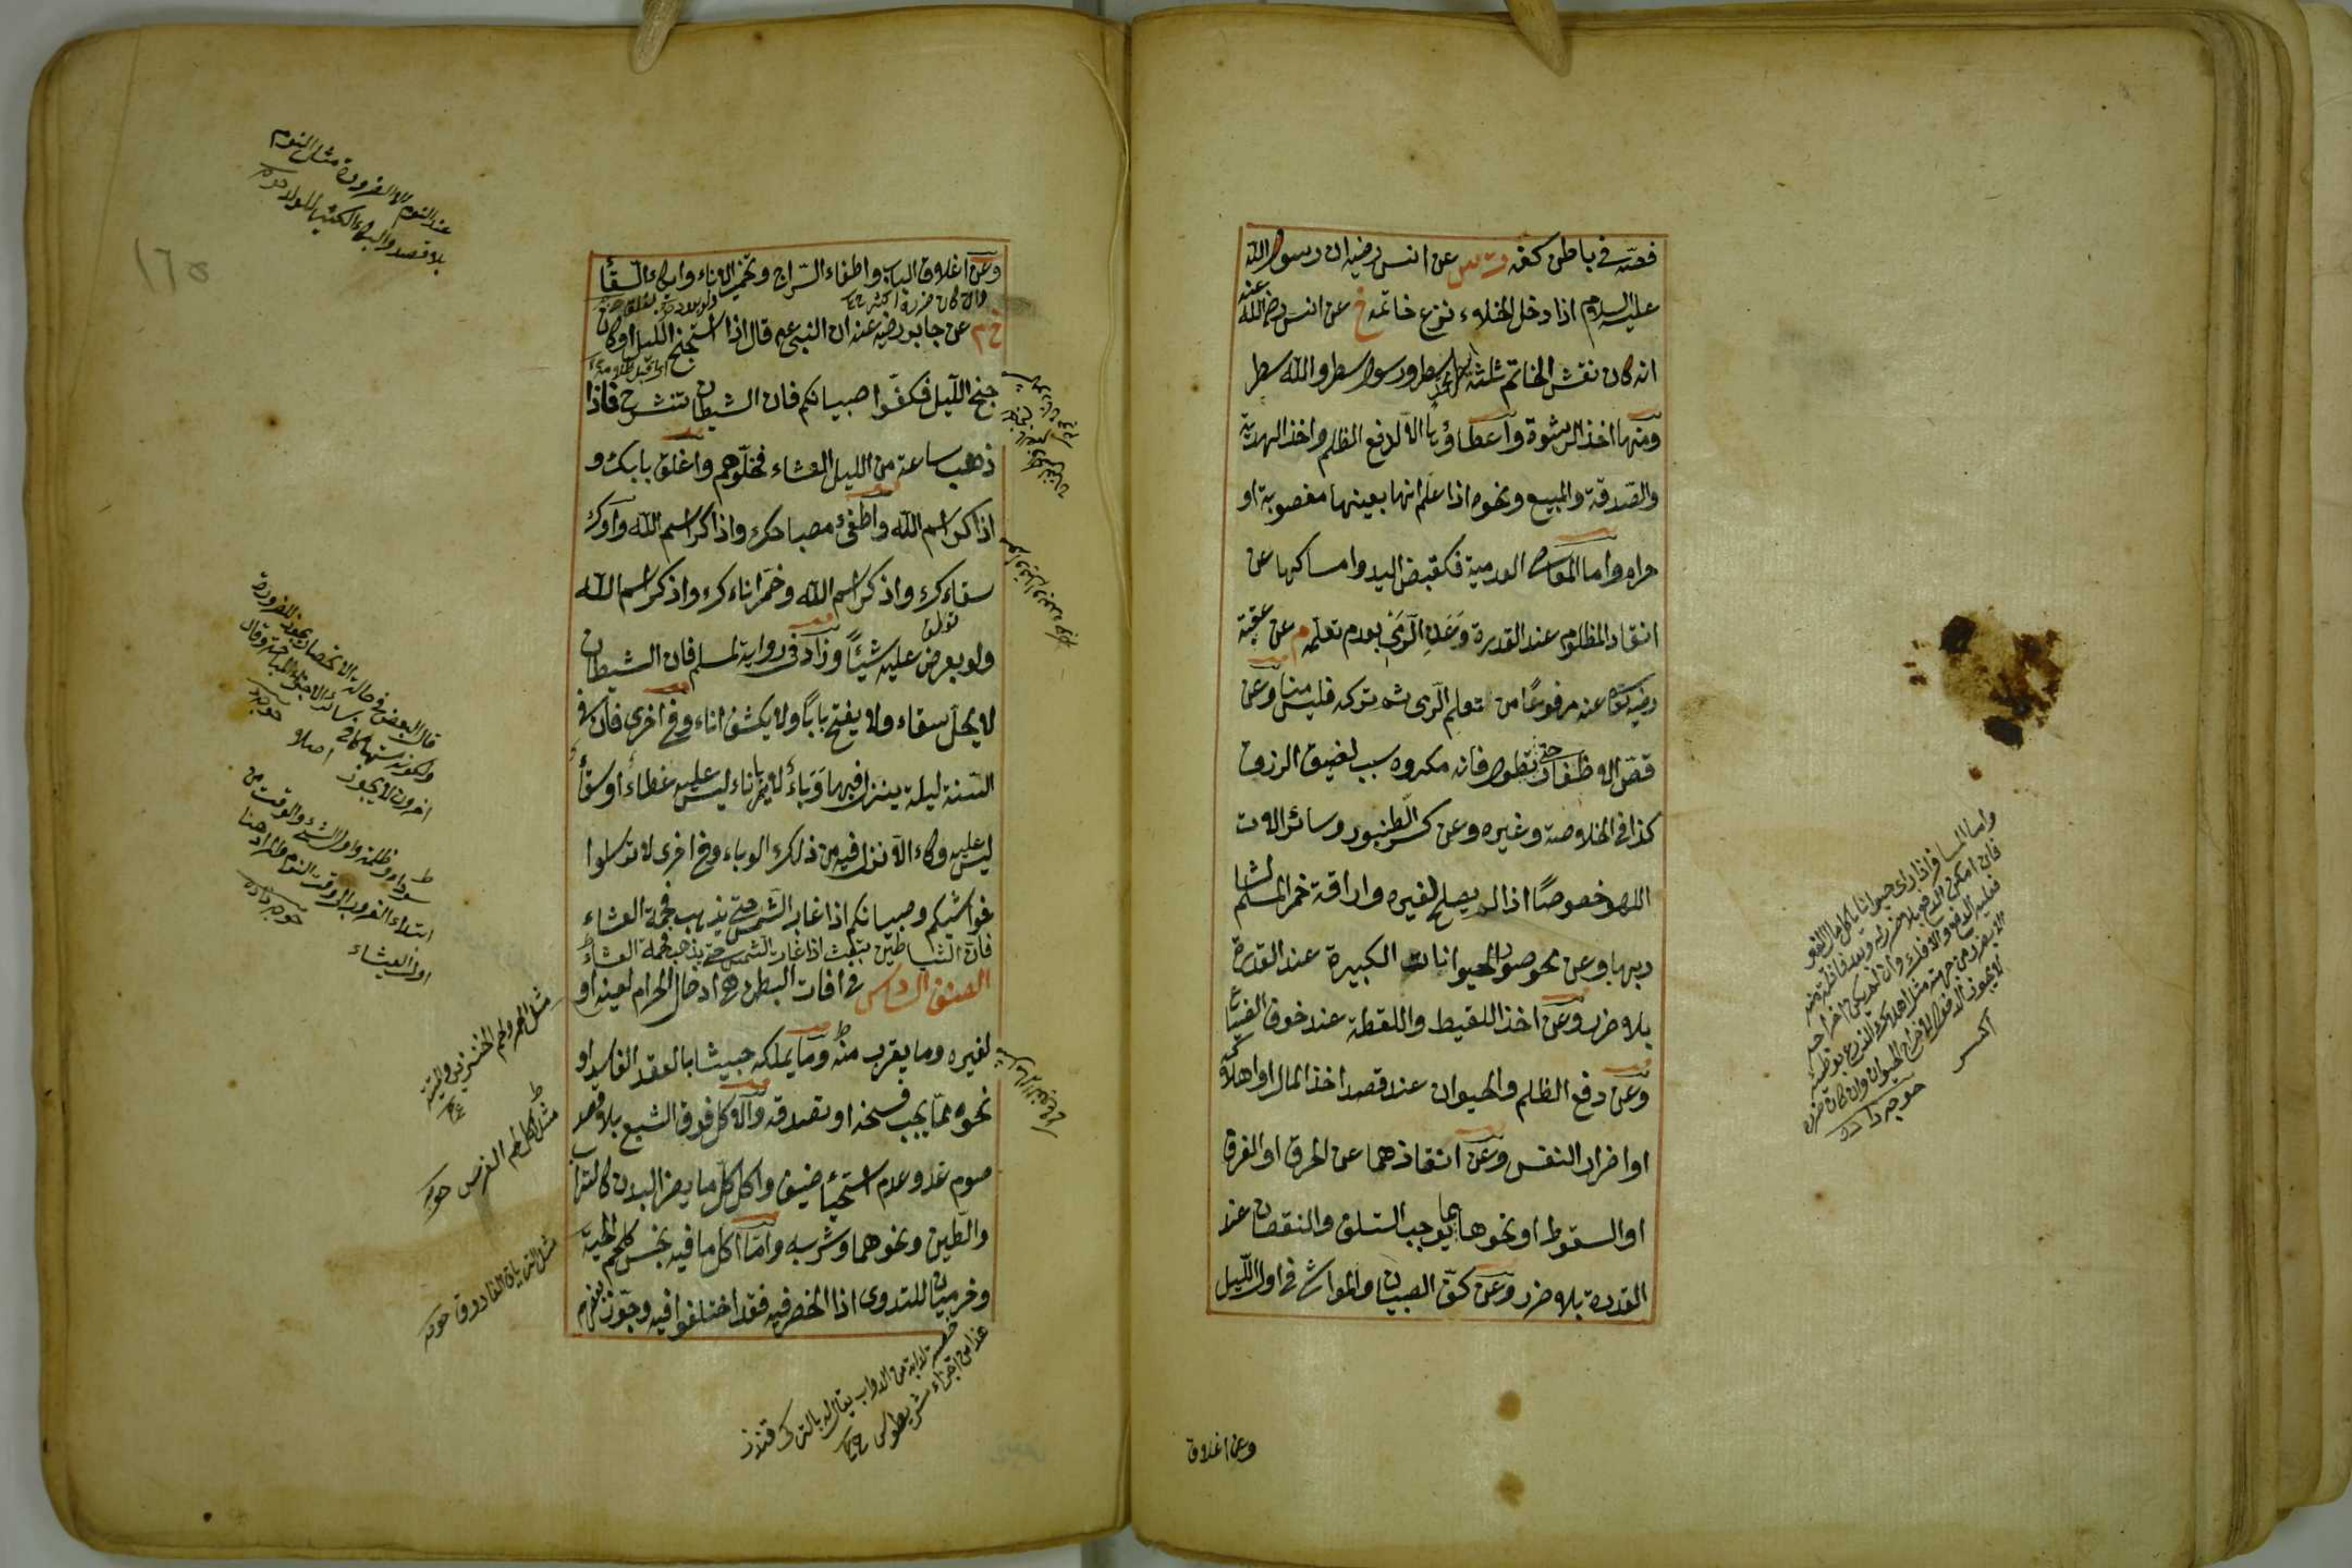 فصه فى باطن كفه ت س عن انس رضيه ان رسول الله
عليه السلام اذا دخل الخلاء نزع خاتمه خ عن انس رضى الله عنه
انه كان نقش الخاتم ثلثة اسطر محمد سطر ورسول سطر والله سطر
ومنها اخذ الرشوة واعطاؤها الا لدفع الظلم واخذ الهدية
والصدقة والمبيع ونحوه اذا علم انها بعينها مغصوبة او
حرام واما المعاصى العدمية فكقبض اليد وامساكها عن
انقاذ المظلوم عند القدرة وعن الرمى بعدم تعلمه م عن عقبة
رضيه عنه مرفوعًا من تعلم الرمى ثم تركه فليس منا وعن
قص الاظفار حتى تطول فانه مكروه سبب لضيق الرزق
كذا فى الخلاصة وغيره وعن كسر الطنبور وسائر الات
اللهو خصوصًا اذا لم يصلح لغيره واراقة خمر المسلم
بها وعن نحو صول الحيوانات الكبيرة عند القدرة
بلا ضرر وعن اخذ اللقيط واللقطة عند خوف الضياع
وعن دفع الظلم والحيوان عند قصد اخذ المال او اهلاكه
او اضرار النفس وعن انقاذهما عن الحرق او الغرق
او السقوط او نحوها مما يوجب التلف والنقصان عند
القدرة بلا ضرر وعن كف الصبيان والمواشى فى اول الليل
وعن اغلاق
وعن اغلاق الباب واطفاء السراج وتخمير الاناء وايكاء السقاء
خ م عن جابر رضيه عنه ان النبى عم قال اذا استجنح الليل او كان
جنح الليل فكفوا صبيانكم فان الشيطان تنتشر ح فاذا
ذهب ساعة من الليل العشاء فخلوهم واغلق بابك و
اذكر اسم الله واطفئ مصباحك واذكر اسم الله واوك
سقاءك واذكر اسم الله وخمر اناءك واذكر اسم الله
ولو بعرض عليه شيئًا وزاد فى رواية لمسلم فان الشيطان
لا يحل سقاء ولا يفتح بابًا ولا يكشف اناء وفى اخرى فان فى
السنة ليلة ينزل فيها وباء لا يمر باناء ليس عليه غطاء او سقاء
ليس عليه وكاء الا نزل فيه من ذلك الوباء وفى اخرى لا ترسلوا
فواشيكم وصبيانكم اذا غابت الشمس حتى يذهب فحمة العشاء
فان الشياطين تبعث اذا غابت الشمس حتى يذهب فحمة العشاء
الصنف السادس فى افات البطن هى ادخال الحرام لعينه او
لغيره وما يقرب منه وما يملكه خبيثا بالعقد الفاسد او
نحوه مما يجب فسخه او تصدقه والاكل فوق الشبع بلا قصد
صوم غد وعدم استحياء ضيف واكل كل ما يضر البدن كالتراب
والطين ونحوهما وشربه واما اكل ما فيه نجس كلحم الحية
وخرميان للتدوى اذا انحصر فيه فقد اختلفوا فيه وجوز بعضهم
عند النوم الا لضرورة مثل النوم
بلا قصد
قال البعض فى حالة الانحصار يجوز للضرورة
اخرون لا يجوز اصلا
ابتداء الغروب الى وقت النوم والمراد هنا
اول العشاء
خوجه زاده
مثل الخمر ولحم الخنزير والميتة
مثل اكل لحم الفرس
مثل الترياق الفاروق
خصية لدابة من الدواب يقال له بالتركى قندز
فاذا راى حيوانا ياكل مال الغير